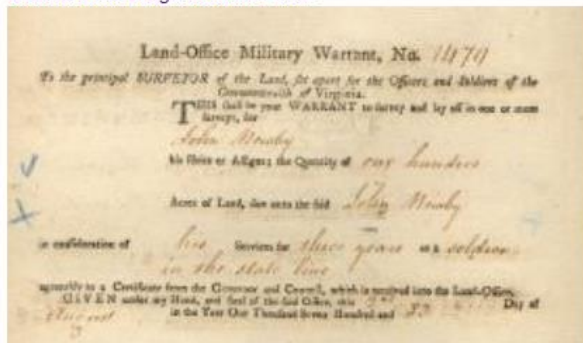 Land-Office Military Warrant, No. 1479
To the principal SURVEYOR of the Land, set apart for the Officers and Soldiers of the
Commonwealth of Virginia.
THIS shall be your WARRANT to survey and lay off in one or more
surveys, for
John
his Heirs or Assigns, the Quantity of one hundred
Acres of Land, due unto the said John
in consideration of his Services for three years as a soldier
in the state line
agreeably to a Certificate from the Governor and Council, which is received into the Land-Office.
GIVEN under my Hand, and Seal of the said Office, this 2nd Day of
August in the Year One Thousand Seven Hundred and 83